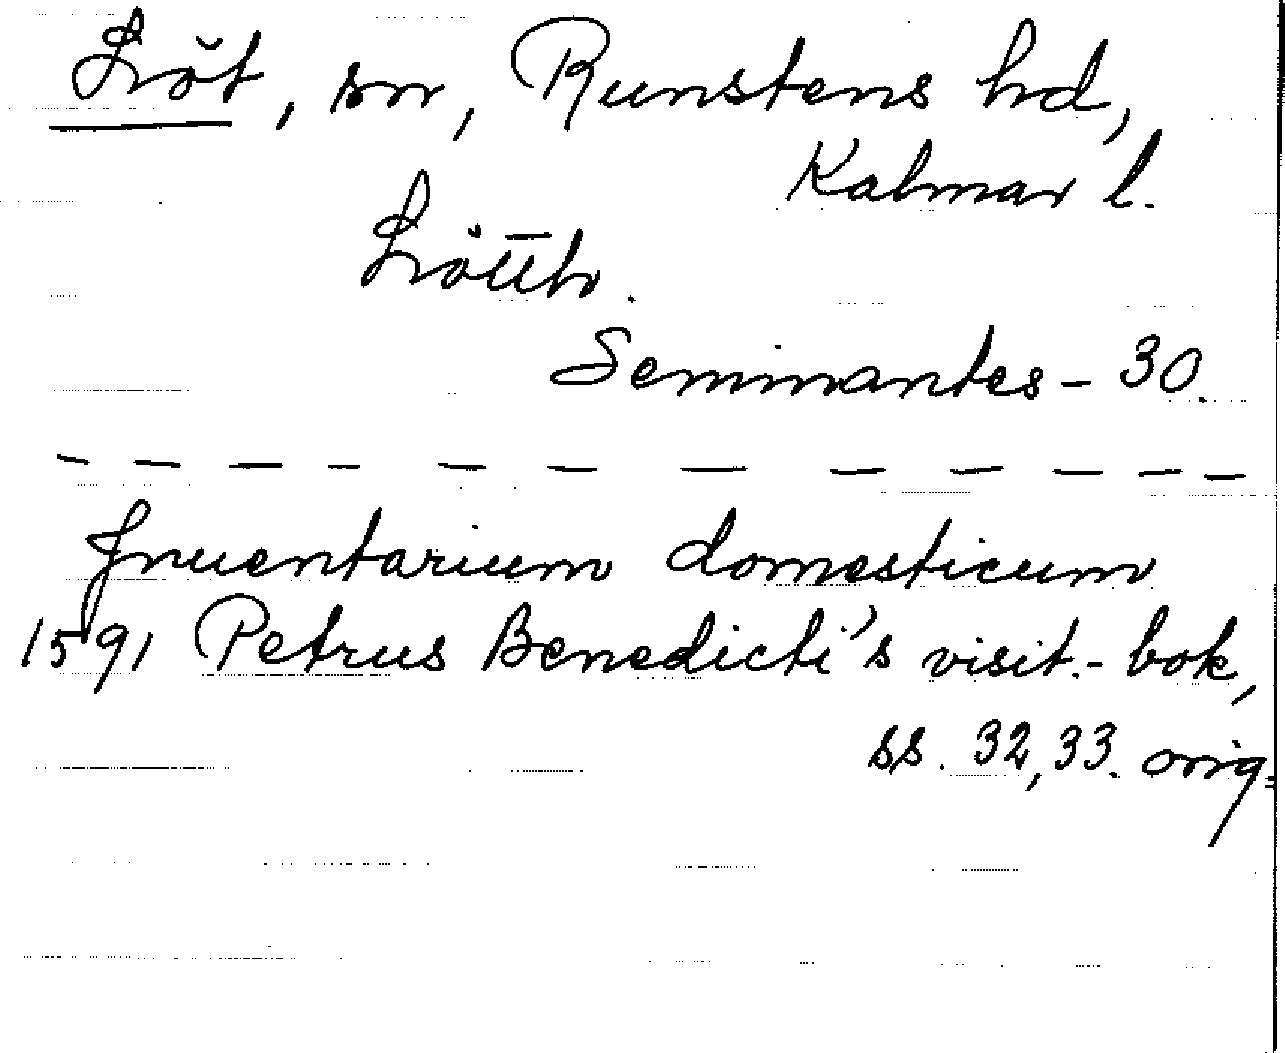 Löt, sn, Runstens hd,
Kalmar l.
Lötth.
Seminantes - 30.
Inuentarium domesticum
1591 Petrus Benedicti's visit.- bok,
ss. 32, 33. orig.